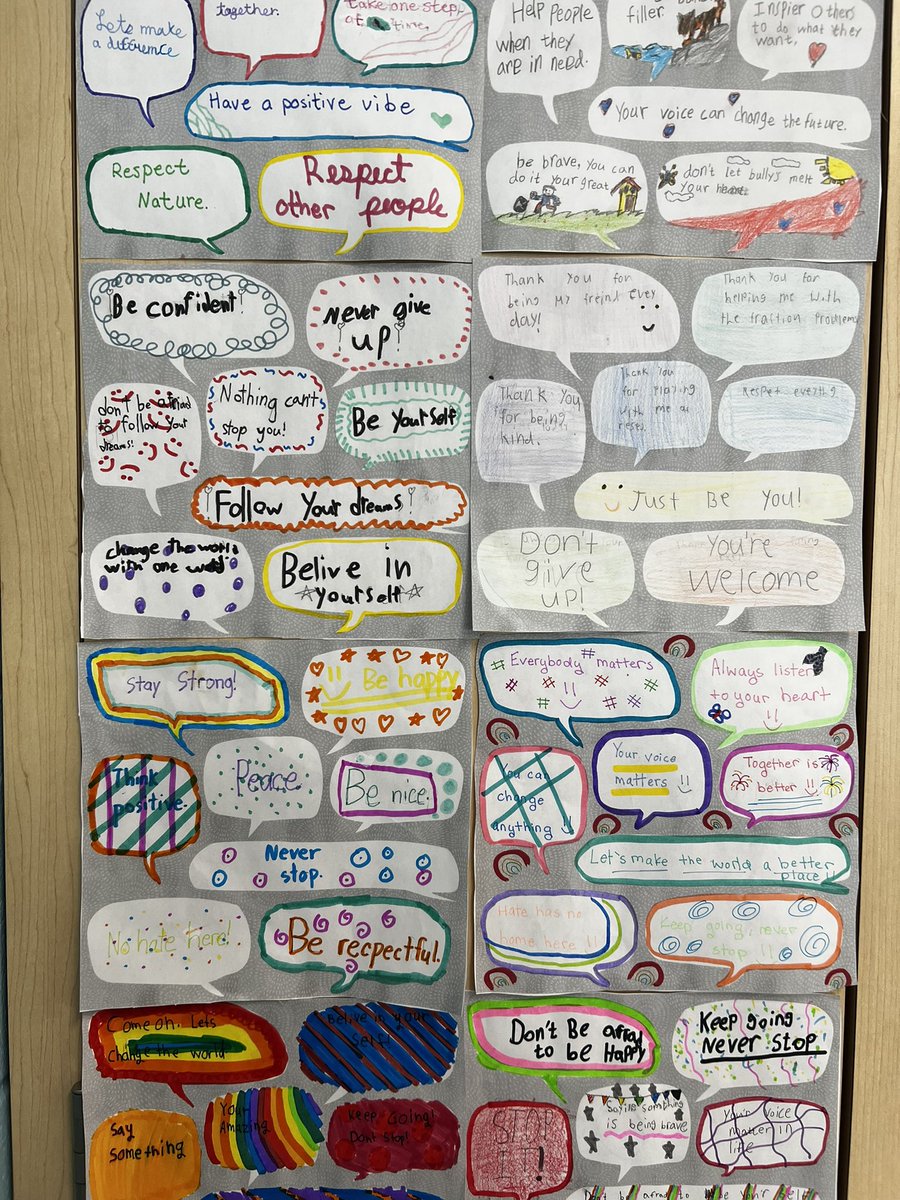 Lets make
a difference
together.
Take one step
at a time.
Have a positive vibe
Respect
Nature.
Respect
other people
Help people
when they
are in need.
filler
Inspier others
to do what they
want.
Your voice can change the future.
be brave, you can
do it your great
don't let bullys melt
your heart
Be confident!
Never give
up!
don't be afraid
to follow your
dreams!
Nothing can't
stop you!
Be Yourself
Follow Your dreams!
change the world
with one word
Belive in
yourself
Thank You for
being My freind Evey
day!
Thank You for
helping me with
the fraction problems
Thank You
for being
kind.
Thank You
for Playing
with me at
Respet everthig
Just Be You!
Don't
give
up!
You're
welcome
Stay Strong!
Be happy
Think
positive.
Peace
Be nice.
Never
stop.
No hate here!
Be recpectful.
#Everybody #matters
# # # # #
Always listen
to your heart
You can
change
anything !!
Your voice
matters !!
Together is
better !!
Let's make the world a better
place !!
Hate has no
home here !!
Keep going, never
stop !!
Come on. Lets
Change the world
Belive in your
self!
Say
something
Your
Amazing
Keep Going!
Dont Stop!
Don't Be afraid
to be Happy
Keep going
Never stop
STOP
IT!
Saying something
is being brave
Your voice
matter in
life
Dont be afraid to be your self